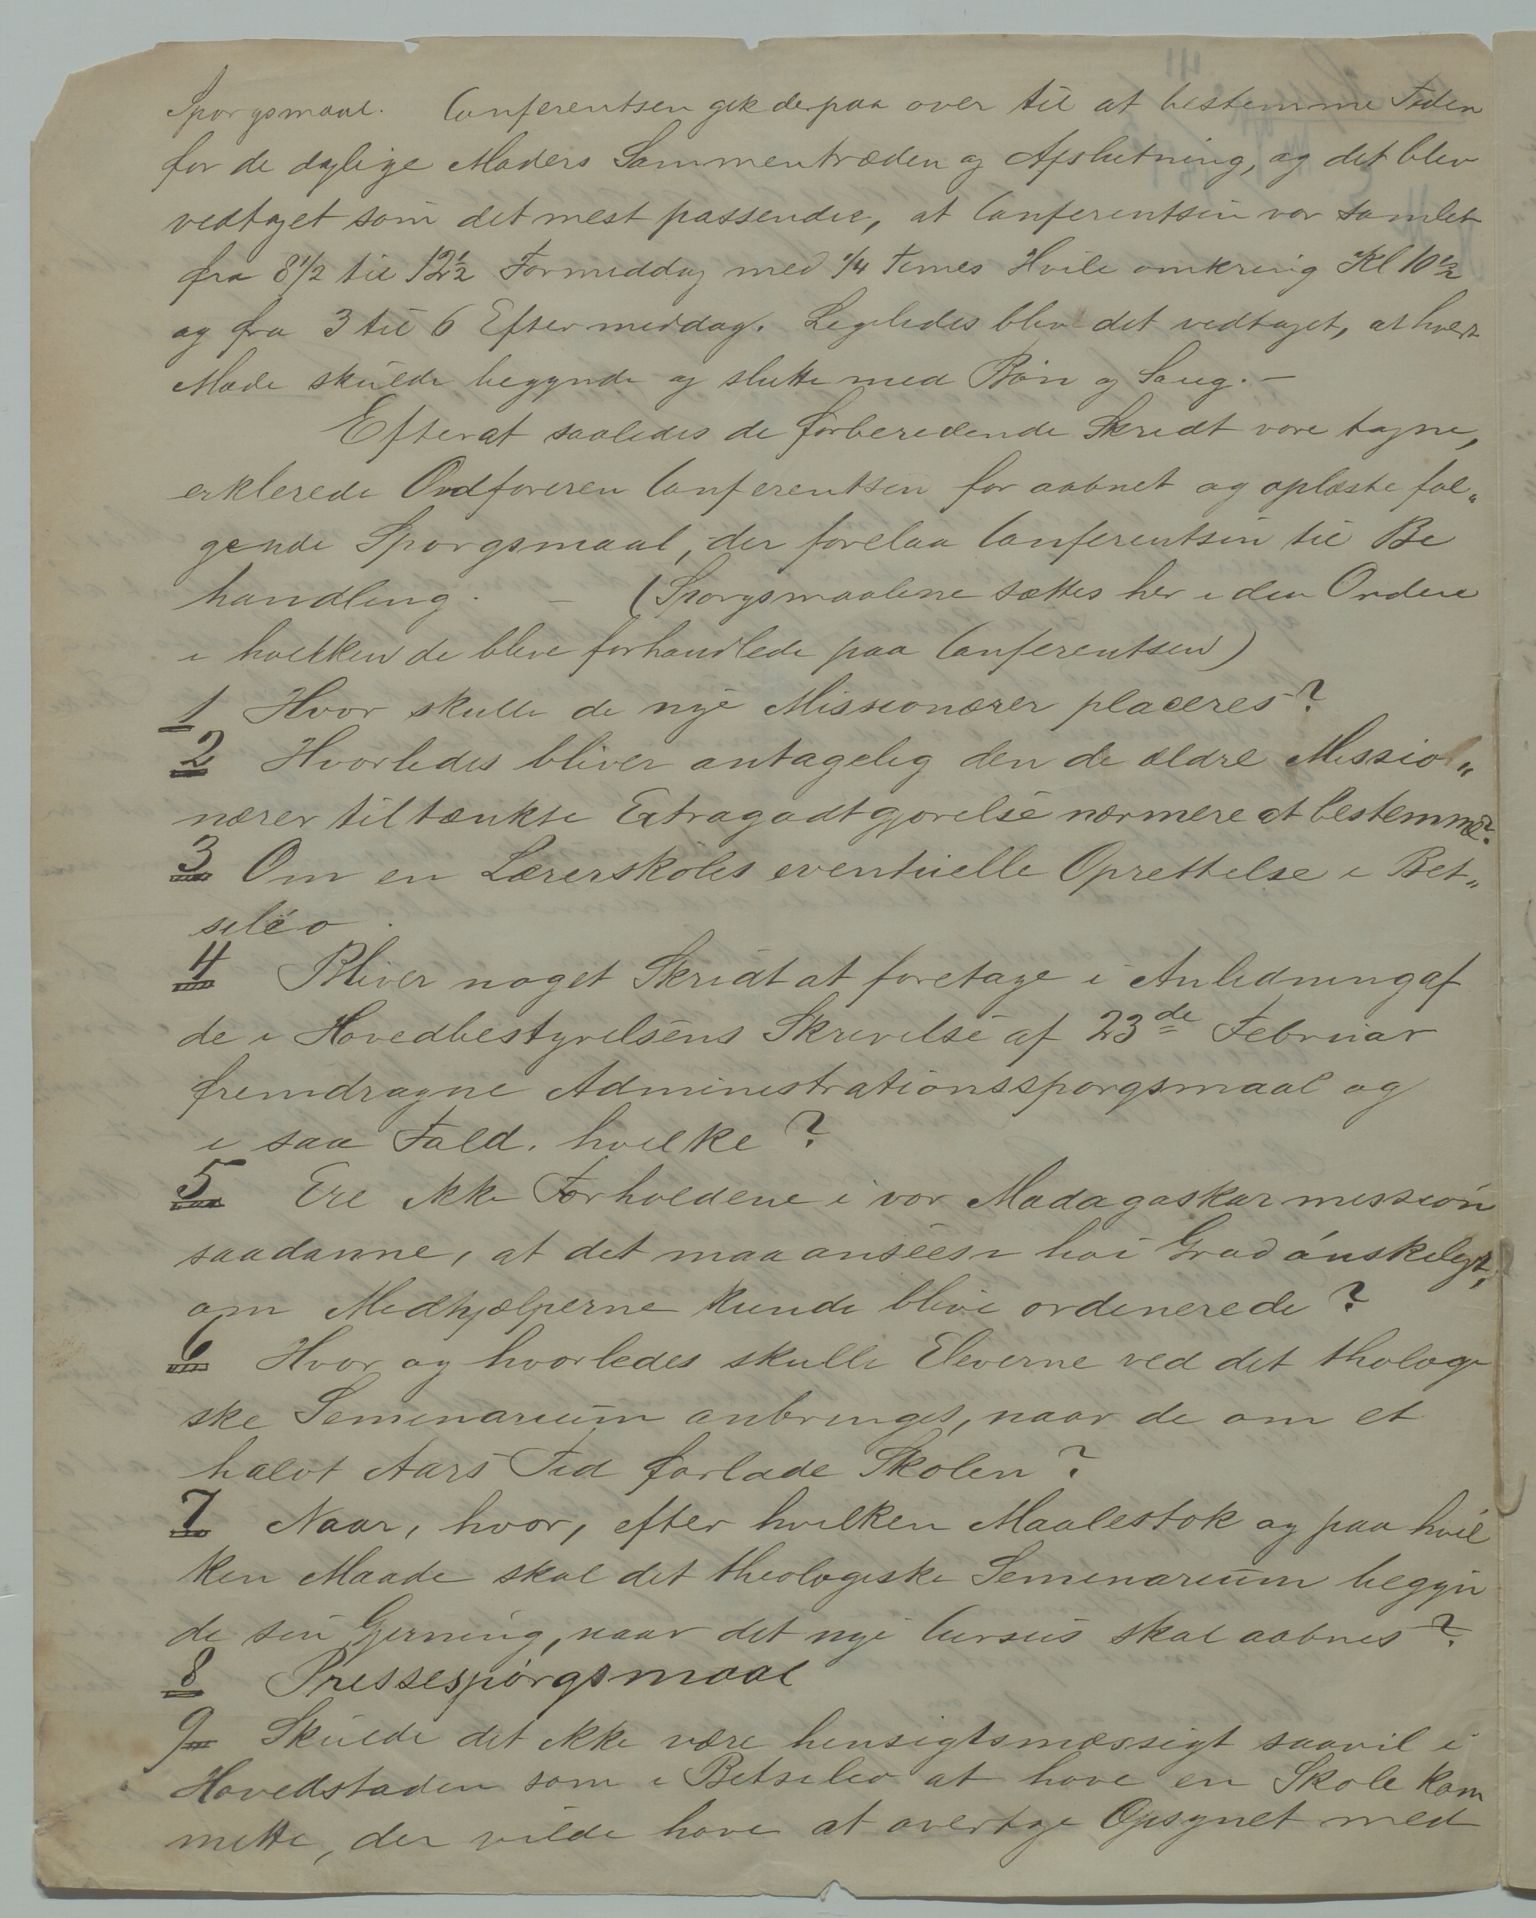 Spørgsmaal. Conferentsen gik derpaa over til at bestemme Tiden
for de daglige Møders Sammentræden og Afslutning, og det blev
vedtaget som det mest passende, at Conferentsen var samlet
fra 8 1/2 til 12 1/2 Formiddag med 1/4 Times Hvile omkring Kl 10 1/2
og fra 3 til 6 Eftermiddag. Ligeledes blev det vedtaget, at hvert
Møde skulde begynde og slutte med Bøn og Sang. –
Efterat saaledes de forberedende Skridt vare tagne,
erklerede Ordføreren Conferentsen for aabnet og oplæste føl„
gende Spørgsmaal, der forelaa Conferentsen til Be
handling. – (Spørgsmaalene sættes her i den Orden
i hvilken de bleve forhandlede paa Conferentsen)
1 Hvor skulle de nye Missionærer placeres?
2 Hvorledes bliver antagelig den de ældre Missio„
nærer tiltænkte Extragodtgjørelse nærmere at bestemme?
3 Om en Lærerskoles eventuelle Oprettelse i Bet„
siléo.
4 Bliver noget Skridt at foretage i Anledning af
de i Hovedbestyrelsens Skrivelse af 23de Februar
fremdragne Administrationsspørgsmaal og
i saa Fald, hvilke?
5 Ere ikke Forholdene i vor Madagaskarmission
saadanne, at det maa ansees i høi Grad ønskeligt,
om Medhjælperne kunde blive ordinerede?
6 Hvor og hvorledes skulle Eleverne ved det thologi
ske Seminarium anbringes, naar de om et
halvt Aars Tid forlade Skolen?
7 Naar, hvor, efter hvilken Maalestok og paa hvil
ken Maade skal det theologiske Seminarium begyn
de sin Gjerning, naar det nye Cursus skal aabnes?
8 Pressespørgsmaal
9 Skulde det ikke være hensigtsmæssigt saavil i
Hovedstaden som i Betsileo at have en Skolekom
mitte, der vilde have at overtage Opsynet med